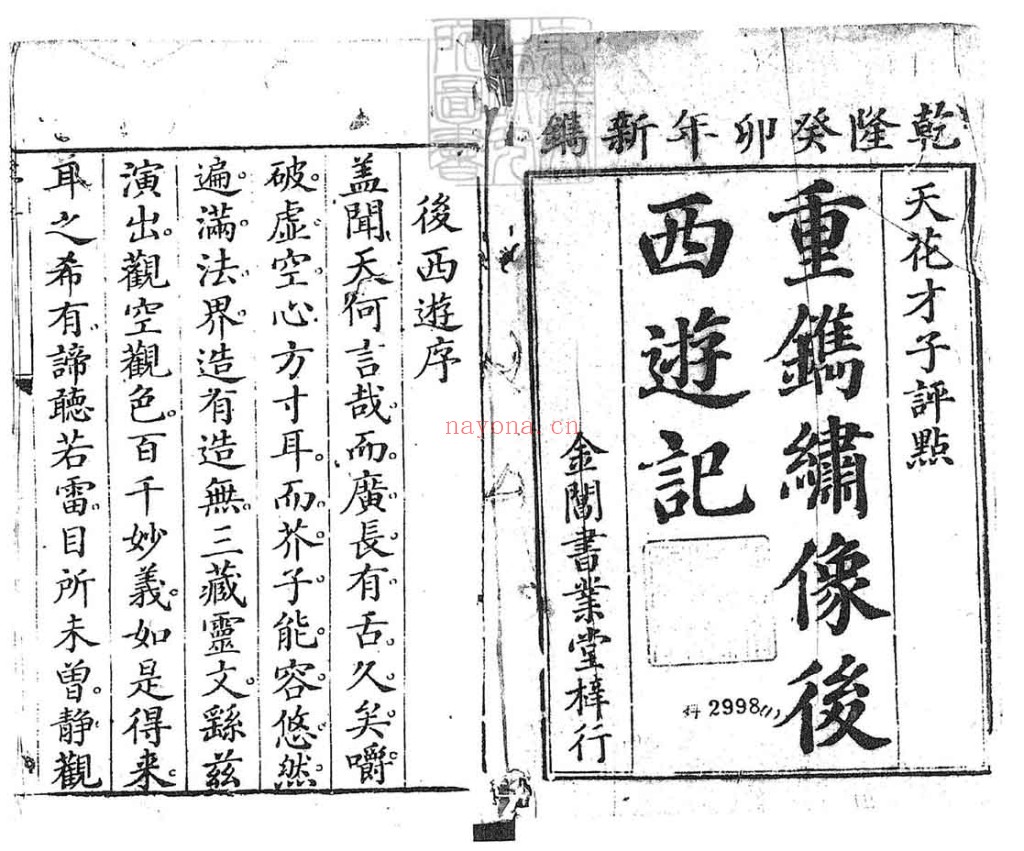 乾隆癸卯年新鐫
天花才子評點
重鐫繡像後
西遊記
金閶書業堂梓行
2998
後西遊序
蓋聞天何言哉而。廣長有舌。久矣。嚼
破。虛空。心方寸耳。而芥子能容。悠然
遍。滿法界。造有造無。三藏靈文。繇兹
演出。觀空觀色。百千妙義。如是得来。
耳之希有。諦聽若雷。目所未曾。靜觀
nayona.cn